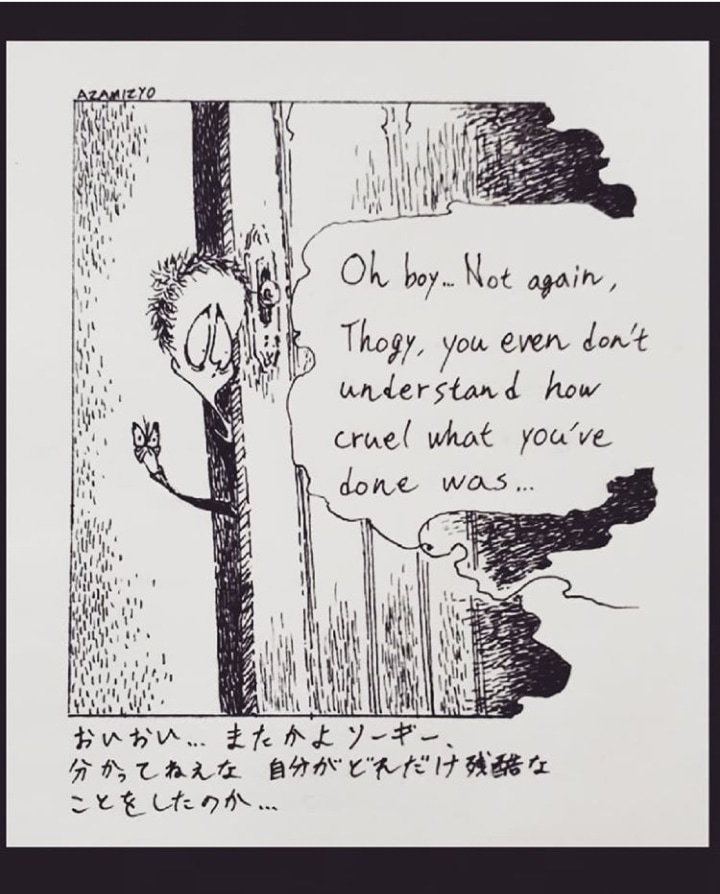 AZAMIZYO
Oh boy... Not again,
Thogy, you even don't
understand how
cruel what you've
done was...
おいおい... またかよ ソーギー、
分かってねえな 自分がどれだけ残酷な
ことをしたのか...